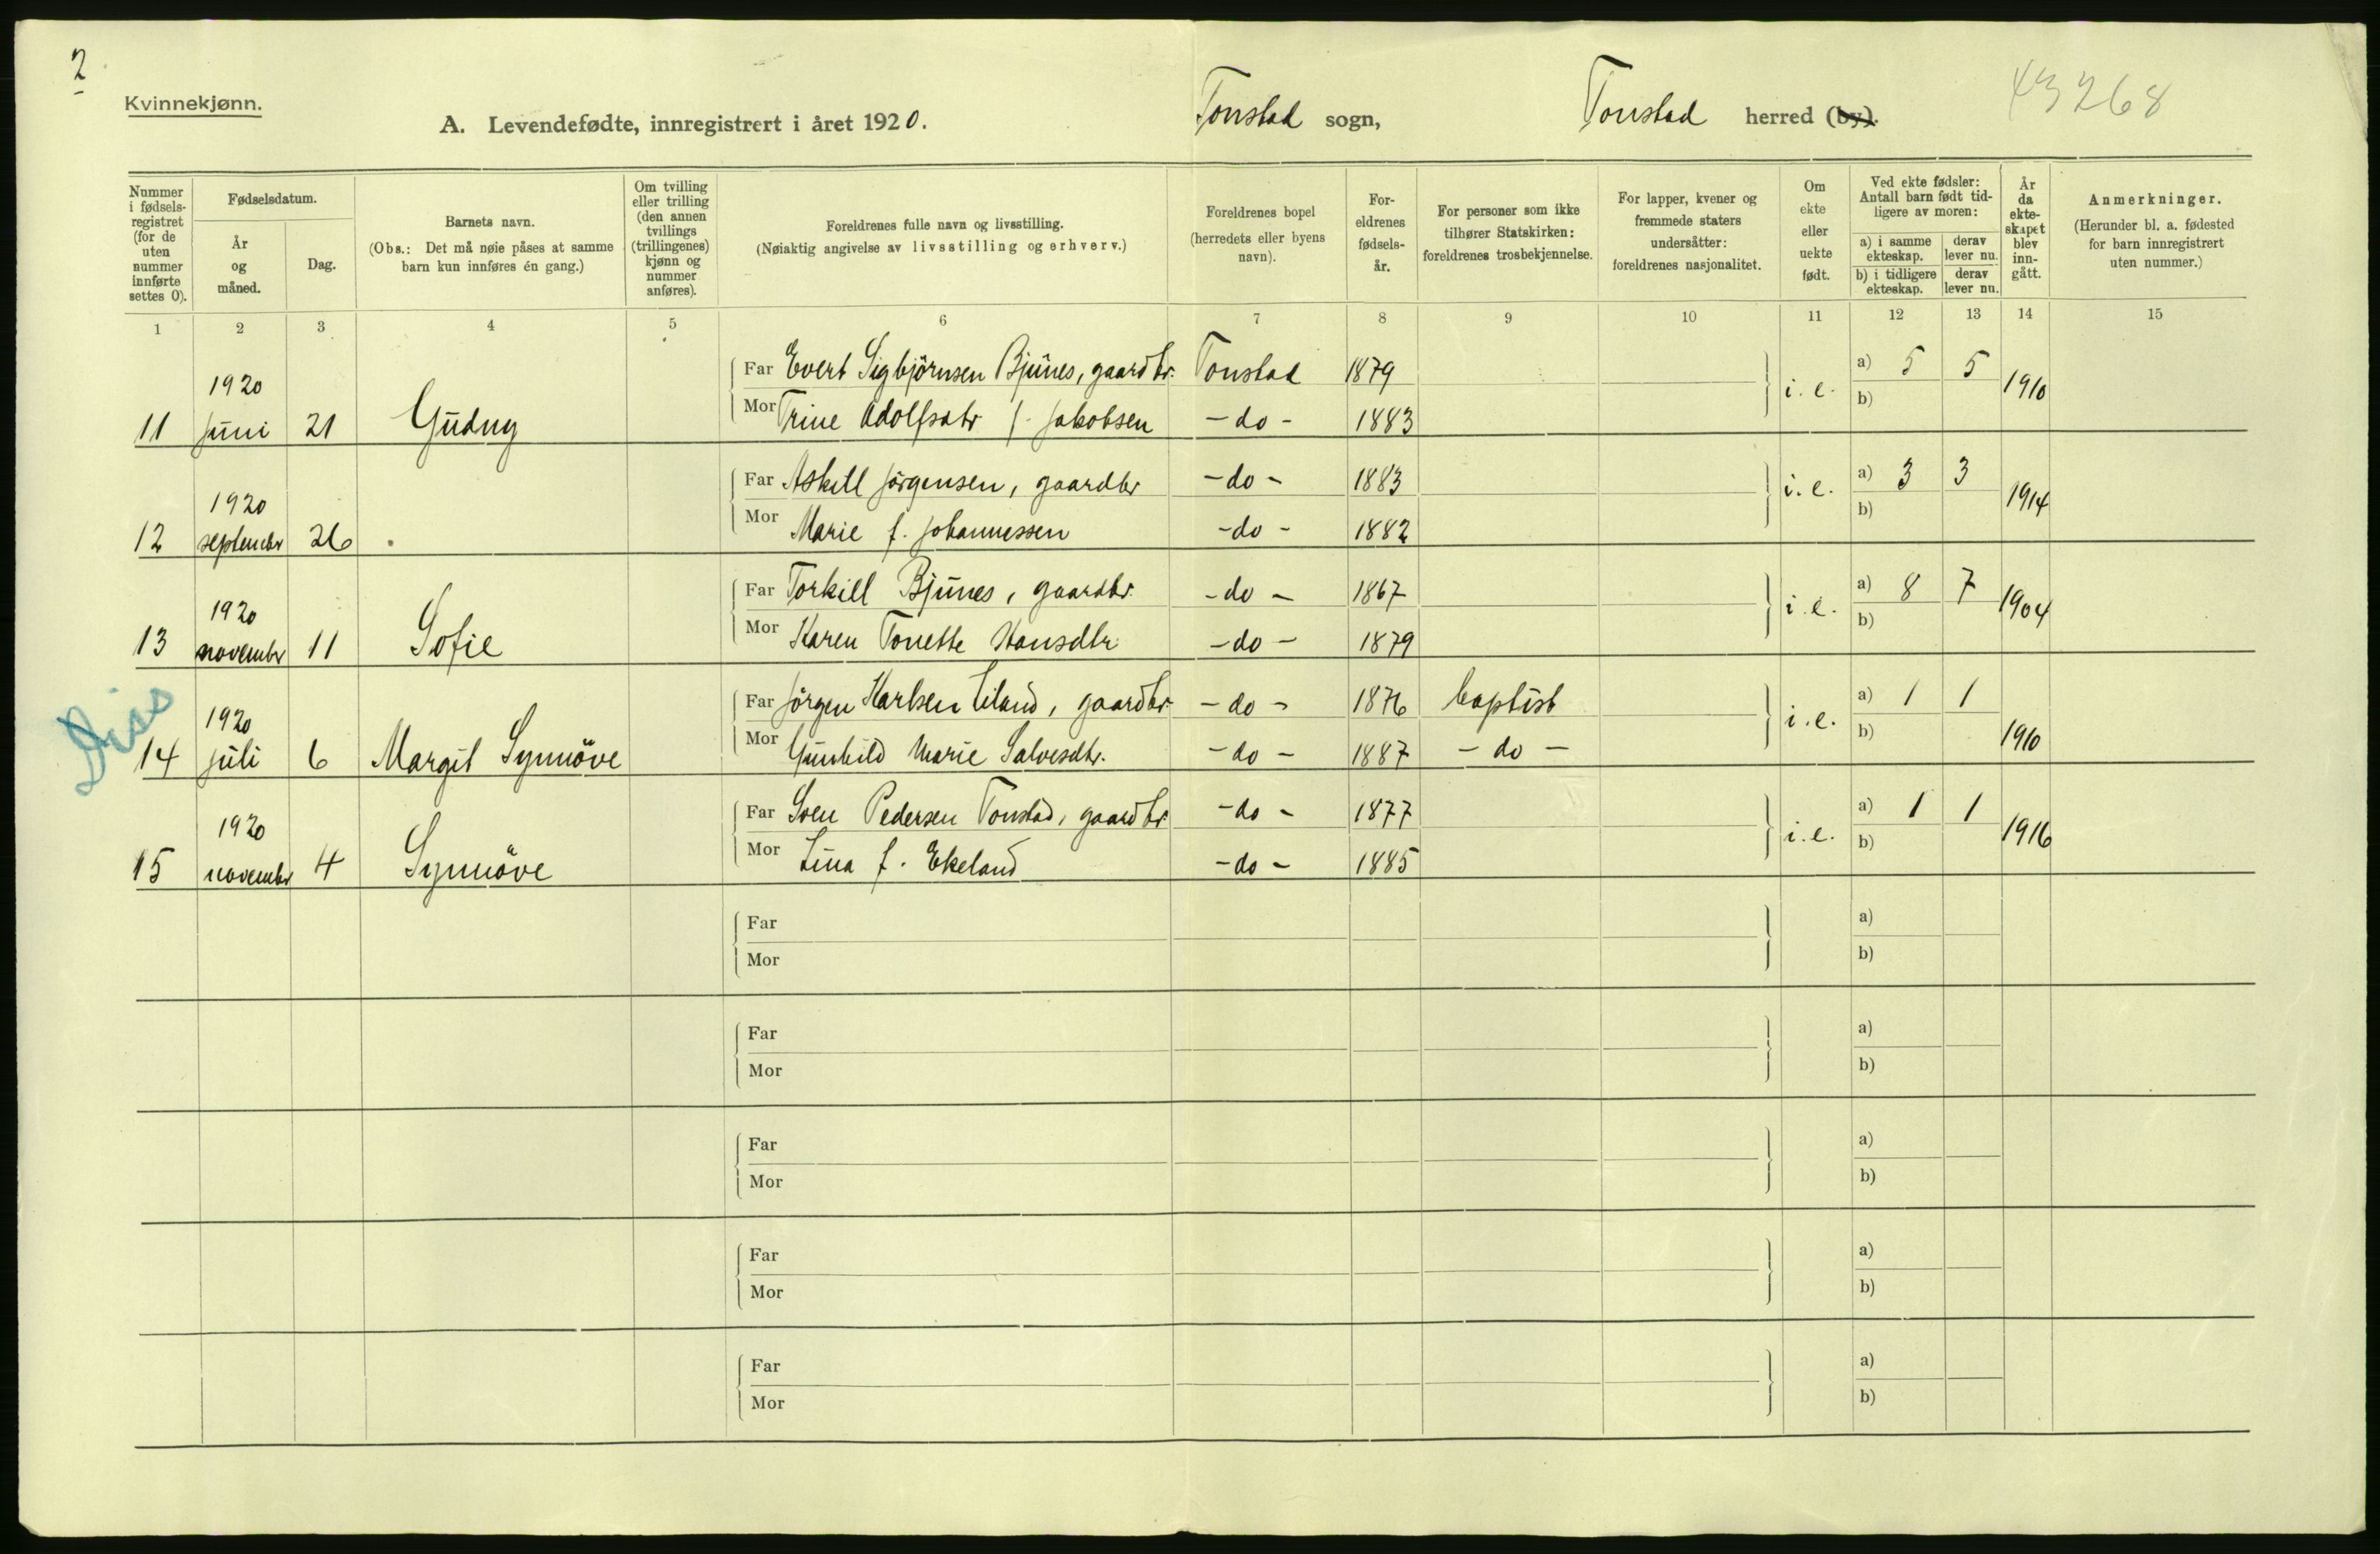 2
Kvinnekjønn.
A. Levendefødte, innregistrert i året 1920.
Tonstad sogn,
Tonstad herred (by).
43268
Nummer i fødsels-registret (for de uten nummer innførte settes 0).
Fødselsdatum.
År og måned.
Dag.
Barnets navn.
(Obs.: Det må nøie påses at samme barn kun innføres én gang.)
Om tvilling eller trilling (den annen tvillings (trillingenes) kjønn og nummer anføres).
Foreldrenes fulle navn og livsstilling.
(Nøiaktig angivelse av livsstilling og erhverv.)
Foreldrenes bopel (herredets eller byens navn).
For-eldrenes fødsels-år.
For personer som ikke tilhører Statskirken: foreldrenes trosbekjennelse.
For lapper, kvener og fremmede staters undersåtter: foreldrenes nasjonalitet.
Om ekte eller uekte født.
Ved ekte fødsler: Antall barn født tid-ligere av moren:
a) i samme ekteskap.
derav lever nu.
b) i tidligere ekteskap.
derav lever nu.
År da ekte-skapet blev inn-gått.
Anmerkninger.
(Herunder bl. a. fødested for barn innregistrert uten nummer.)
1 2 3 4 5 6 7 8 9 10 11 12 13 14 15
Far Evert Sigbjörnsen Bjünes, gaardbr. Tonstad 1879 a) 5 5
11 1920 Jüni 21 Güdny i. e. 1910
Mor Trine Adolfsdtr f. Jakobsen - do - 1883 b)
Far Askill Jörgensen, gaardbr - do - 1883 a) 3 3
12 1920 septembr 26 . i. e. 1914
Mor Marie f. Johannessen - do - 1882 b)
Far Torkill Bjünes, gaardbr. - do - 1867 a) 8 7
13 1920 novembr 11 Sofie i. e. 1904
Mor Karen Tonette Hansdtr - do - 1879 b)
Diss
Far Jörgen Karlsen Eiland, gaardbr - do - 1876 baptist a) 1 1
14 1920 jüli 6 Margit Synnöve i. e. 1910
Mor Günhild Marie Salvesdtr. - do - 1887 - do - b)
Far Sven Pedersen Tonstad, gaardbr - do - 1877 a) 1 1
15 1920 novembr 4 Synnöve i. e. 1916
Mor Lina f. Ekeland - do - 1885 b)
Far a)
Mor b)
Far a)
Mor b)
Far a)
Mor b)
Far a)
Mor b)
Far a)
Mor b)